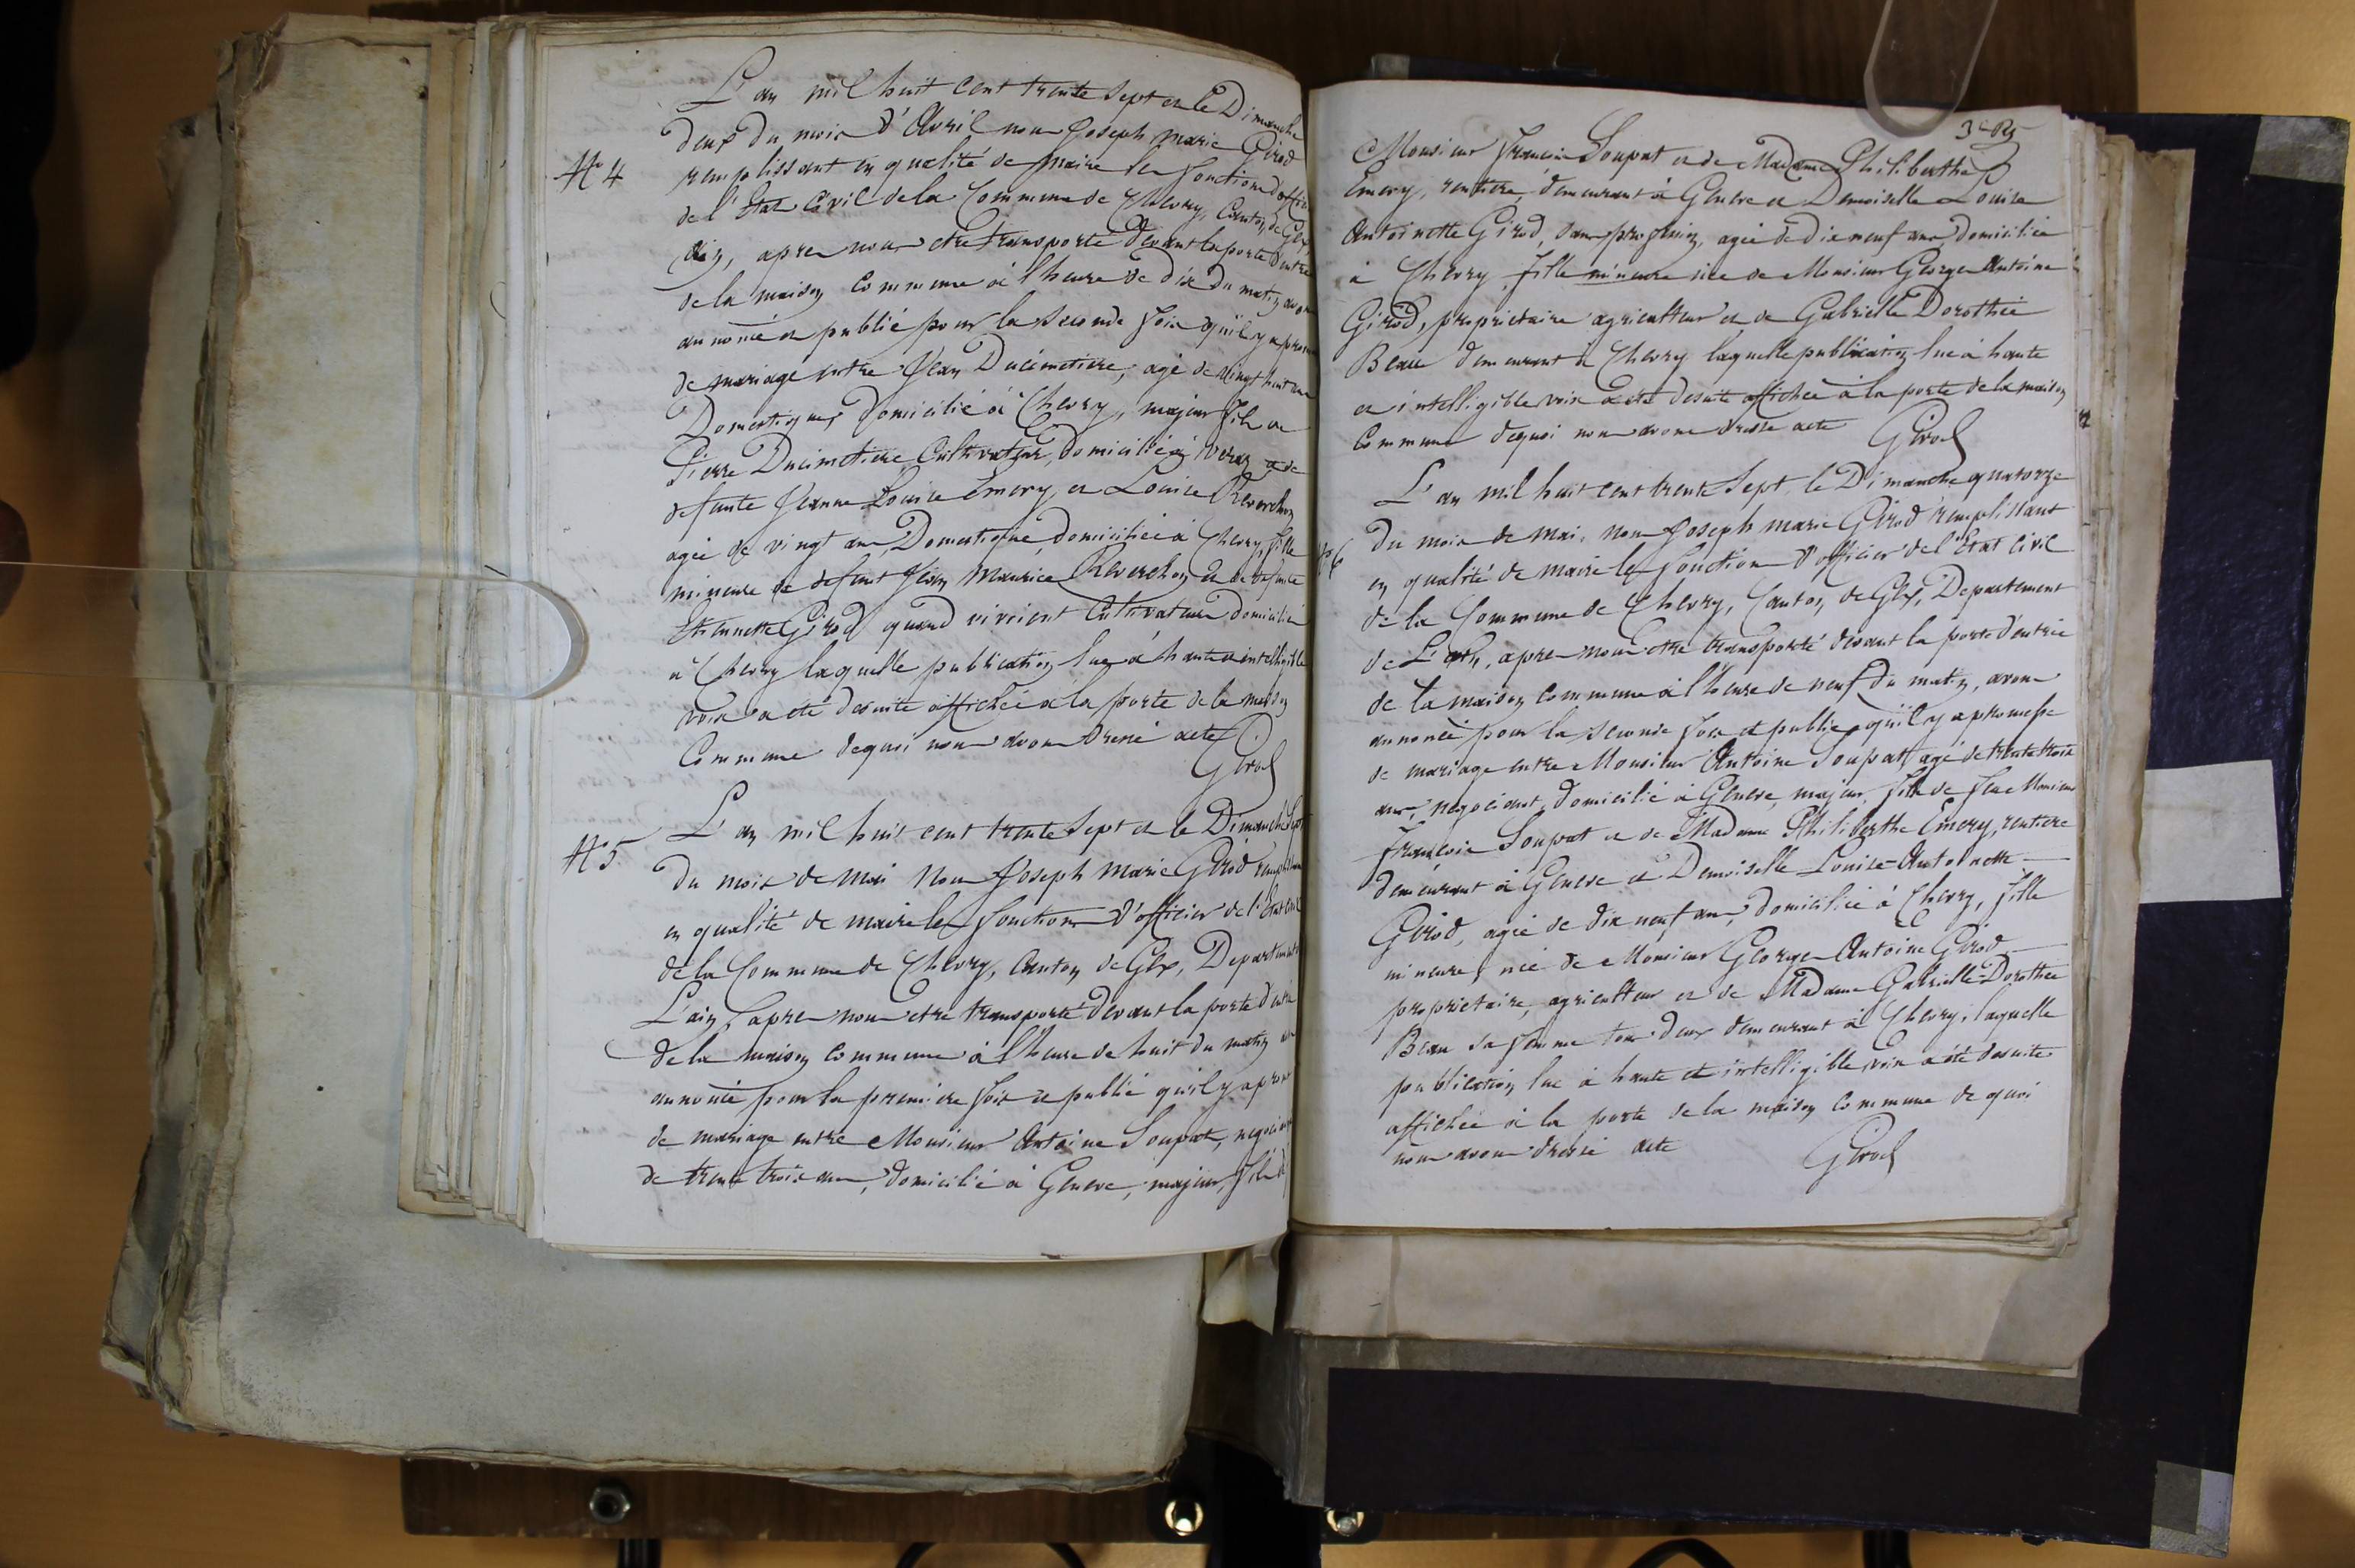 L'an mil huit cent trente sept et le Dimanche
deux du mois d'Avril nous Joseph marie Girod
N° 4
remplissant en qualité de maire les fonctions d'offici
de l'Etat Civil de la Commune de Chevry, Canton de Gex,
Ain, apres nous etre transporté devant la porte d'entrée
de la maison commune à l'heure de dix du matin avons
annoncé et publié pour la seconde fois qu'il y a prom
de mariage entre Jean Ducimetiere, agé de vingt huit ans
Domestique, domicilié à Chevry, majeur fils de
Pierre Ducimetiere Cultivateur, domicilié à Veraz et de
defunte Jeanne Louise Emery, et Louise Reverchon
agée de vingt ans, Domestique, domiciliée à Chevry, fille
mineure de defunt Jean Maurice Reverchon et de defunte
Etiennette Girod quand vivoient Cultivateurs domiciliés
à Chevry laquelle publication lue à haute et intelligible
voix a été de suite affichée à la porte de la maison
Commune de quoi nous avons dressé acte
Girod
N° 5
L'an mil huit cent trente sept et le Dimanche sept
du mois de Mai Nous Joseph Marie Girod remplissant
en qualité de maire les fonctions d'officier de l'Etat civil
de la Commune de Chevry, Canton de Gex, Departement
L'ain, apres nous etre transporté devant la porte d'entré
de la maison commune à l'heure de huit du matin av
annoncé pour la premiere fois et publié qu'il y a prom
de mariage entre Monsieur Antoine Soupat, negociant
de trente trois ans, domicilié à Geneve, majeur, fils de
3e
Monsieur Francois Soupat et de Madame Philiberthe
Emery, rentiere, demeurant à Geneve et Demoiselle Louise
Antoinette Girod, sans profession, agée de dix neuf ans domiciliée
à Chevry, fille mineure née de Monsieur George Antoine
Girod, proprietaire agriculteur et de Gabrielle Dorothée
Beau demeurant à Chevry laquelle publication lue à haute
et intelligible voix a été de suite affichée à la porte de la maison
Commune de quoi nous avons dressé acte Girod
L'an mil huit cent trente sept le Dimanche quatorze
du mois de Mai, nous Joseph marie Girod remplissant
N° 6
en qualité de maire les fonctions d'officier de l'Etat Civil
de la Commune de Chevry, Canton de Gex, Departement
de L'ain, apres nous etre transporté devant la porte d'entrée
de la maison commune à l'heure de neuf du matin, avons
annoncé pour la seconde fois et publié, qu'il y a promesse
de mariage entre Monsieur Antoine Soupat, agé de trente trois
ans, negociant, domicilié à Geneve, majeur, fils de feu Monsieur
Francois Soupat et de Madame Philiberthe Emery, rentiere
demeurant à Geneve et Demoiselle Louise-Antoinette
Girod, agée de dix neuf ans, domiciliée à Chevry, fille
mineure, née de Monsieur George Antoine Girod
proprietaire, agriculteur et de Madame Gabrielle-Dorothée
Beau sa femme tous deux demeurant à Chevry, laquelle
publication lue à haute et intelligible voix a été de suite
affichée à la porte de la maison commune de quoi
nous avons dressé acte Girod